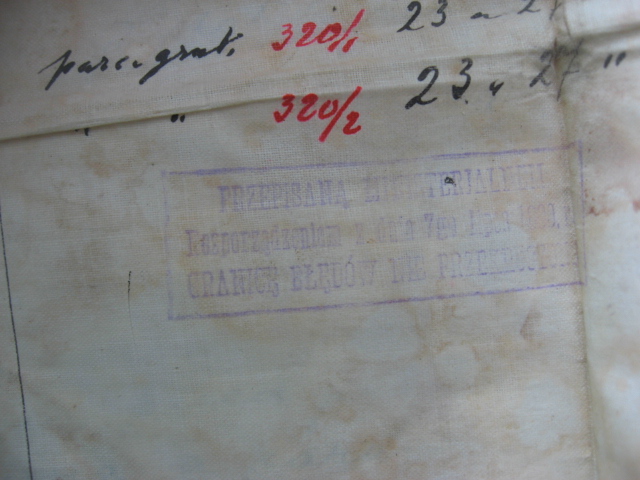 parc. grunt. 320/1 23 a 27
" " 320/2 23 " 27 "
PRZEPISANĄ
Rozporządzeniem z dnia 7go lipca
GRANICĘ BŁĘDÓW NIE